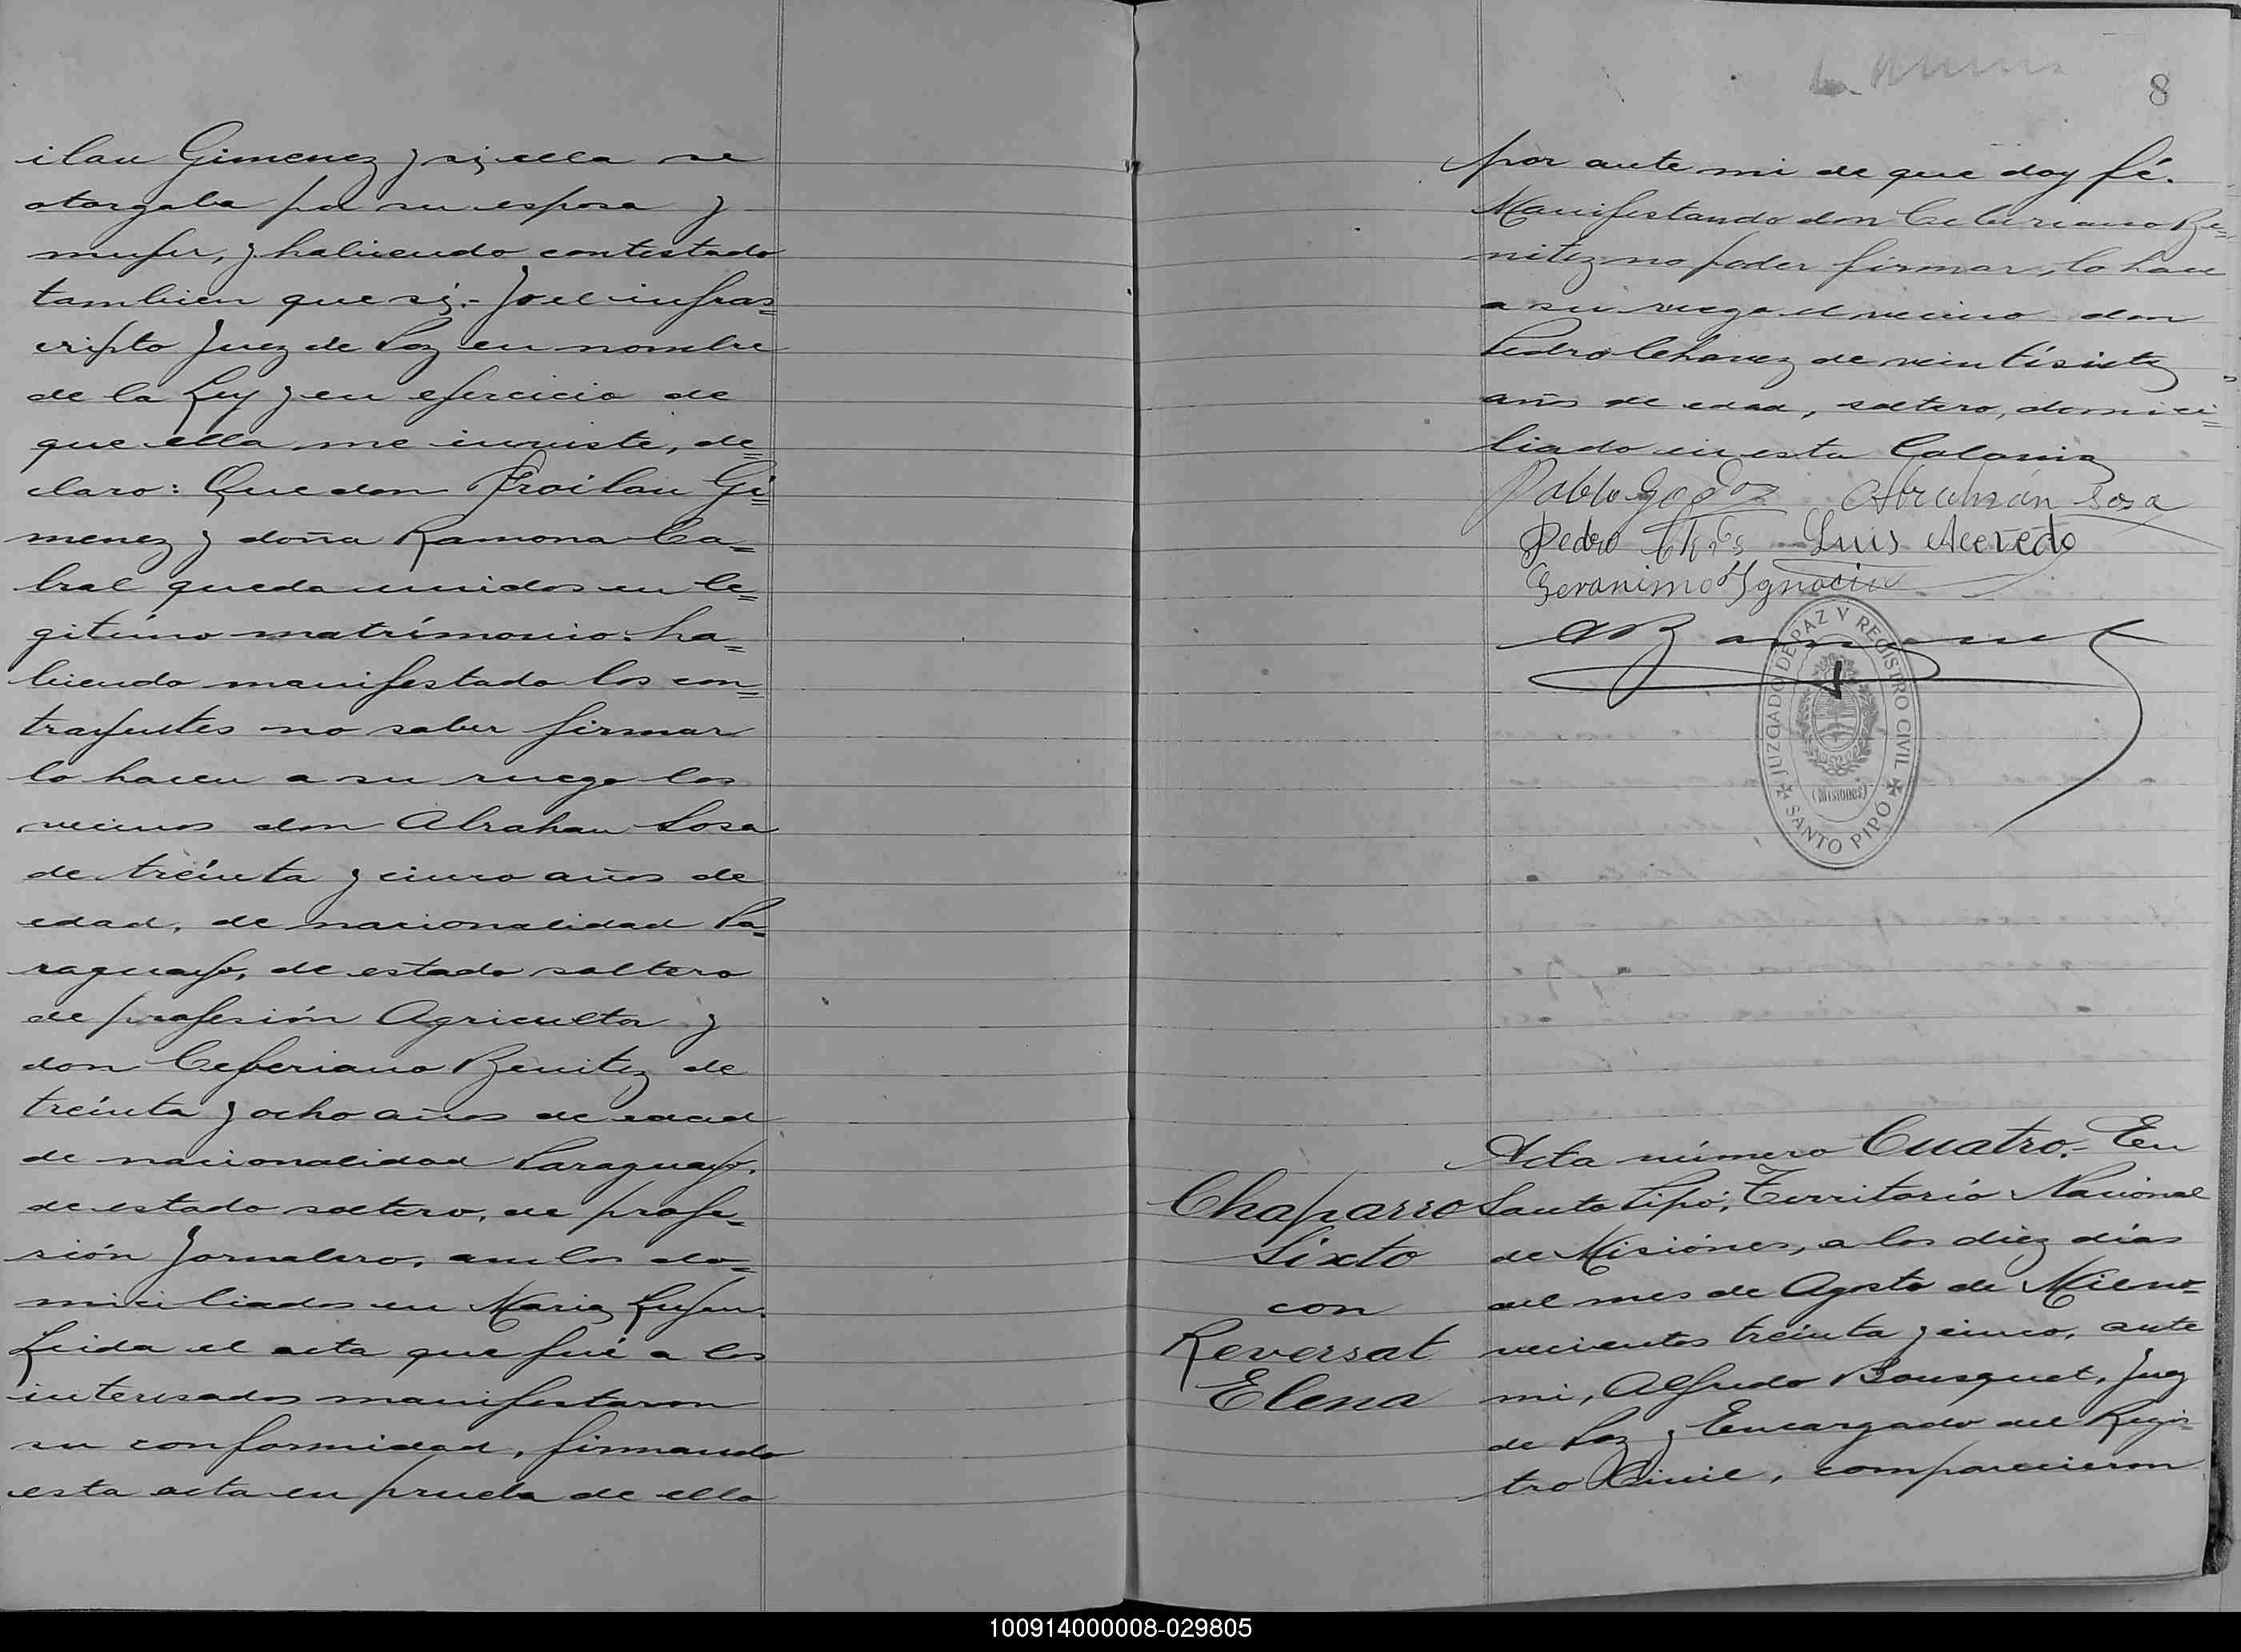 ilan Gimenez y si ella se
otorgaba por su esposa y
mujer, y habiendo contestado
tambien que si.- Yo el infras=
cripto Juez de Paz en nombre
de la Ley y en ejercicio de
que ella me inviste, de=
claro: Que don Froilan Gi=
menez y doña Ramona Ca=
bral queda unidos en le=
gitimo matrimonio. ha=
biendo manifestado los con=
trayentes no saber firmar
lo hacen a su ruego los
vecinos don Abrahan Sosa
de treinta y cinco años de
edad, de nacionalidad Pa=
raguayo, de estado soltero
de profesión Agricultor y
don Ceferiano Benitez de
treinta y ocho años de edad
de nacionalidad Paraguayo,
de estado soltero, de profe=
sión Jornalero, ambos do=
miciliados en Maria
Leida el acta que fué a los
interesados manifestaron
su conformidad, firmando
esta acta en prueba de ello
8
por ante mi de que doy fé.
Manifestando don Be=
nitez no poder firmar, lo hace
a su ruego el vecino don
Pedro Chavez de veintisiete
años de edad, soltero, domici=
liado en esta Colonia
Pablo Godoz Abrahán Sosa
Pedro Luis Acevedo
Geronimo Ygnacio
JUZGADO DE PAZ Y REGISTRO CIVIL
(Misiones)
SANTO PIPÓ
Acta número Cuatro.- En
Chaparro Santo Pipó, Territorio Nacional
Sixto de Misiónes, a los diez días
con del mes de Agosto de Mil no=
Reversat vecientos treinta y cinco, ante
Elena mi, Alfredo Bousquet, Juez
de Paz y Encargado del Regis=
tro Civil, comparecieron
100914000008-029805